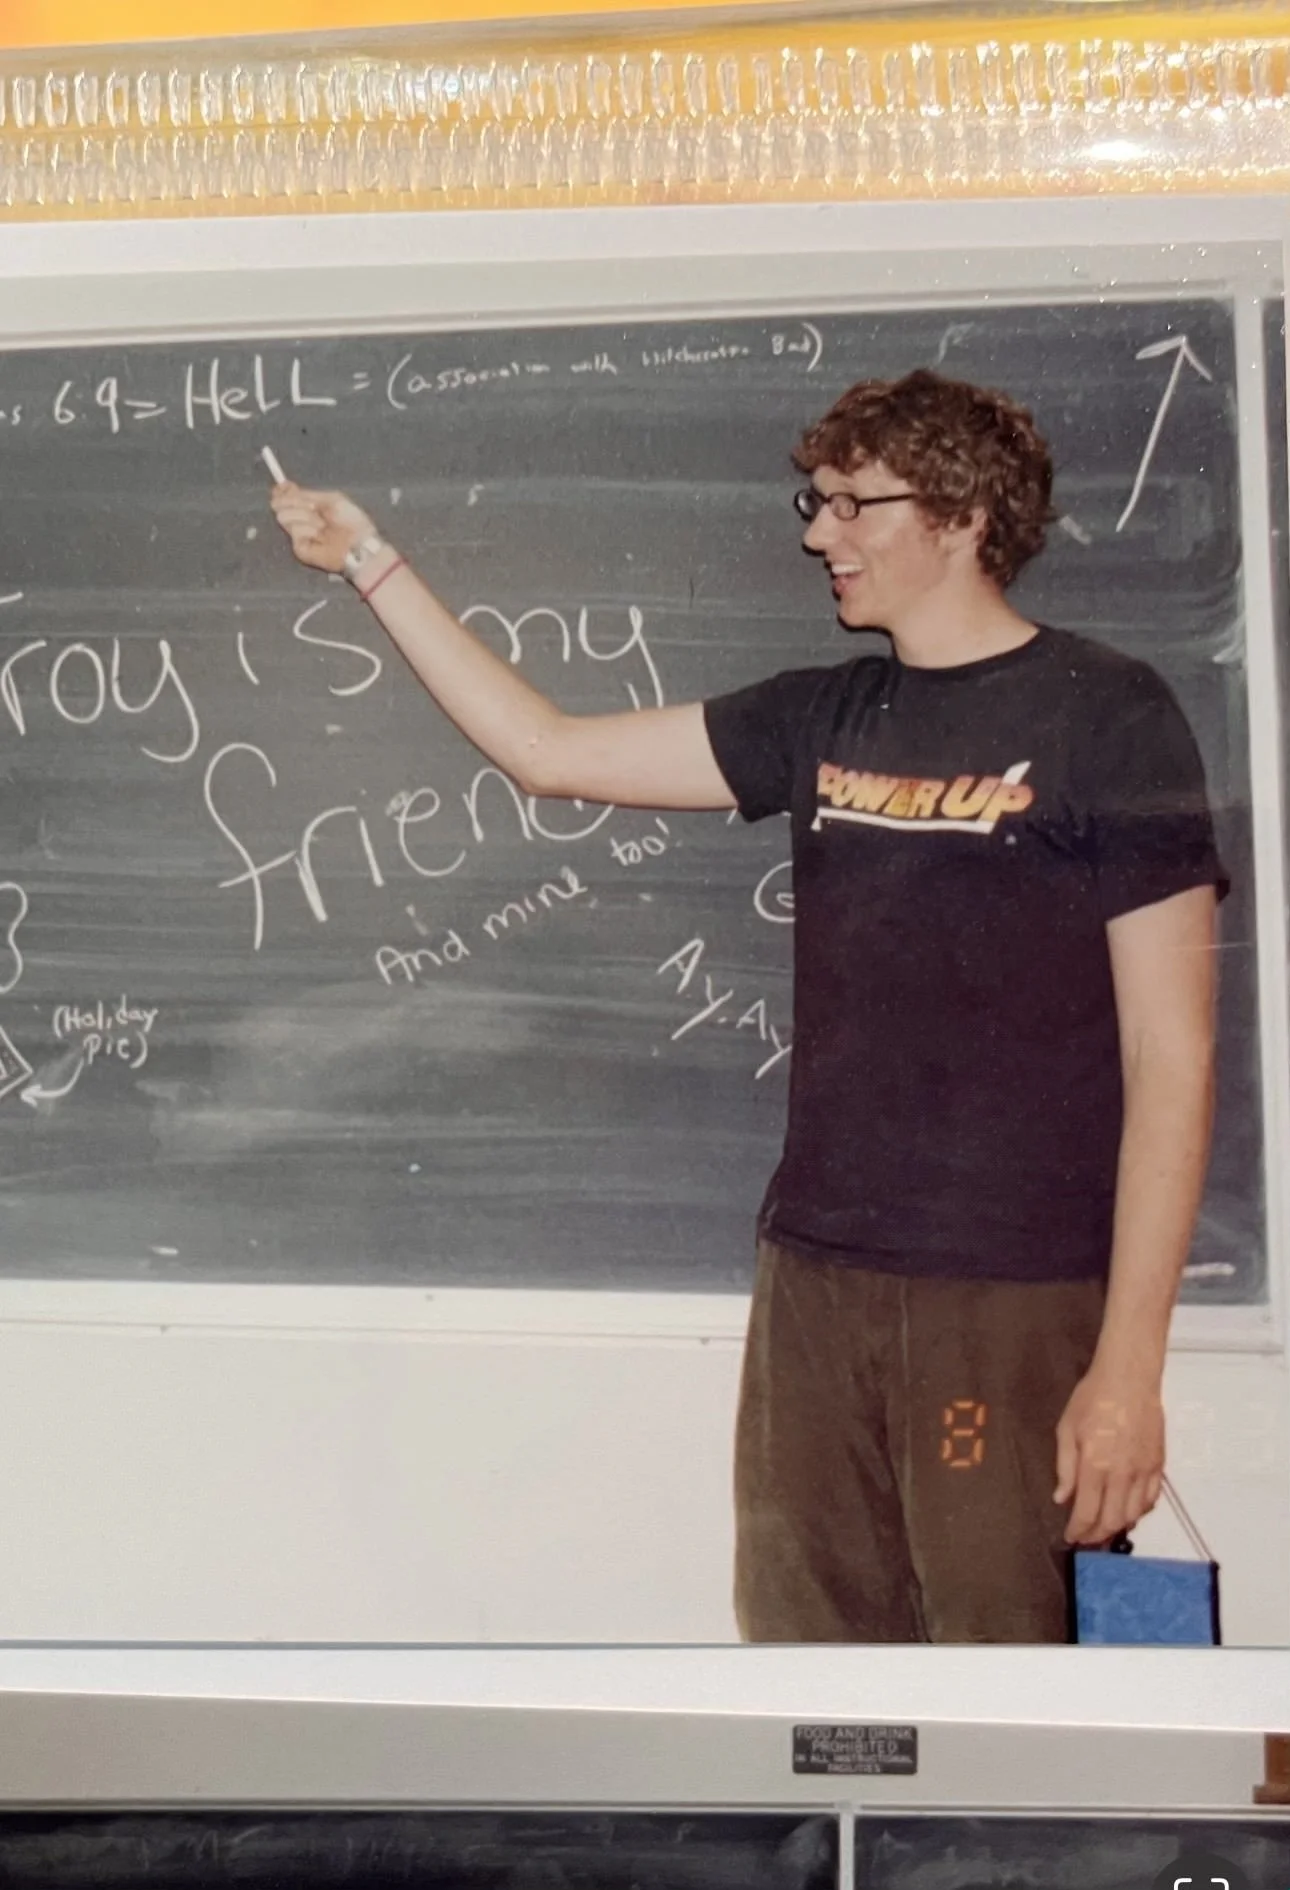 6.9 = HeLL = (association with Bad)
Troy is my
friend
And mine too!
Ay. Ay
(Holiday
Pic)
POWER UP
8
FOOD AND DRINK
PROHIBITED
IN ALL INSTRUCTIONAL
FACILITIES